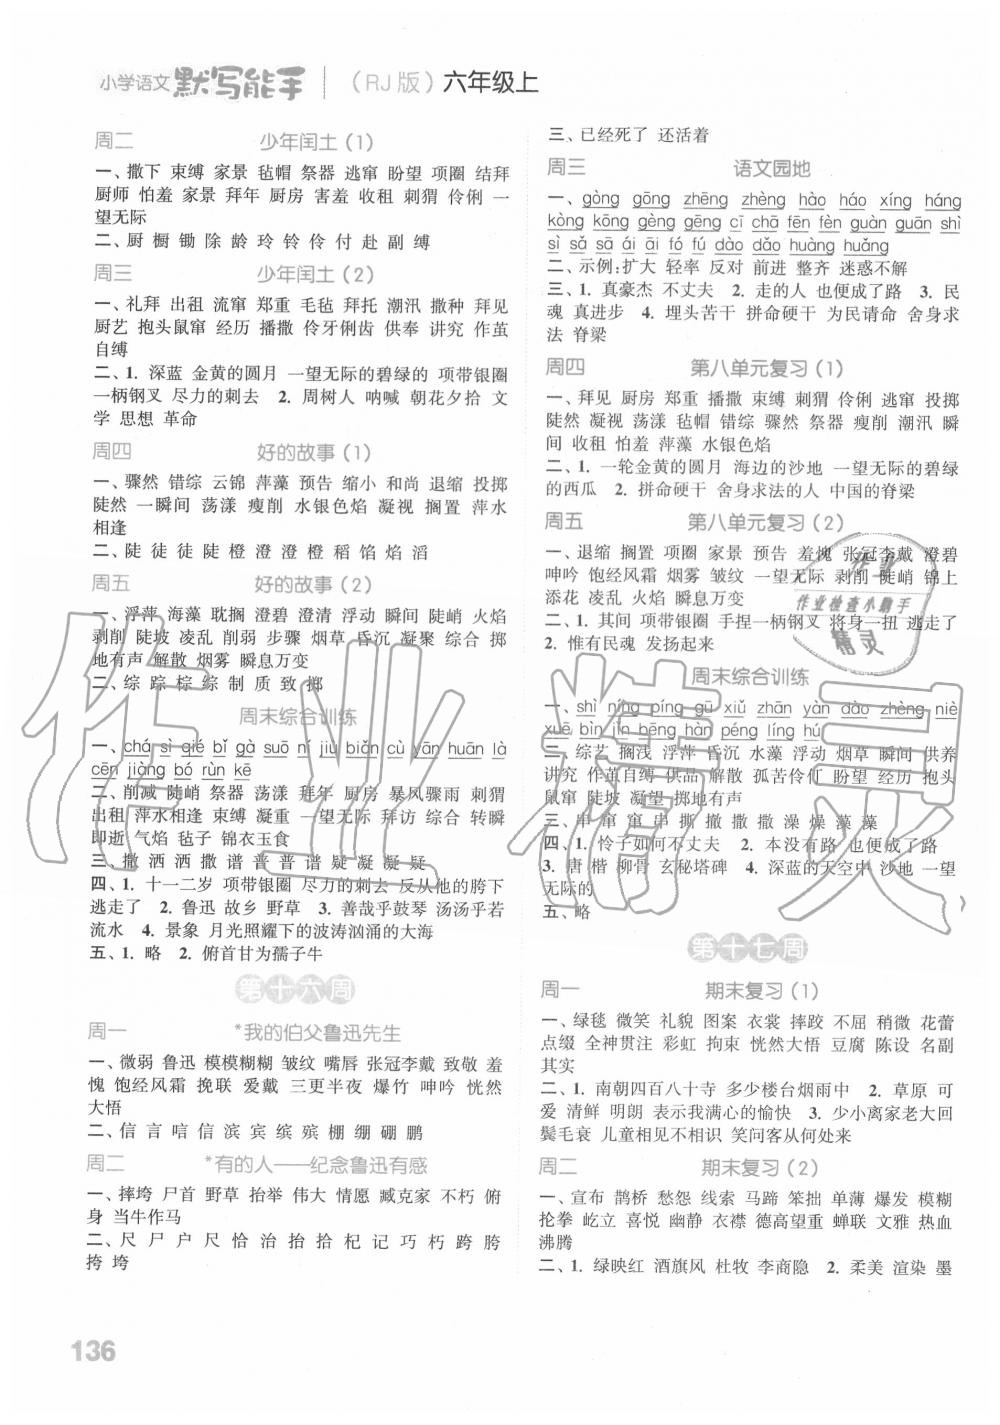 小学语文 默写能手 （RJ版）六年级上
周二 少年闰土（1）
一、撒下 束缚 家景 毡帽 祭器 逃窜 盼望 项圈 结拜
厨师 怕羞 家景 拜年 厨房 害羞 收租 刺猬 伶俐 一
望无际
二、厨 橱 锄 除 龄 玲 铃 伶 付 赴 副 缚
周三 少年闰土（2）
一、礼拜 出租 流窜 郑重 毛毡 拜托 潮汛 撒种 拜见
厨艺 抱头鼠窜 经历 播撒 伶牙俐齿 供奉 讲究 作茧
自缚
二、1. 深蓝 金黄的圆月 一望无际的碧绿的 项带银圈
一柄钢叉 尽力的刺去 2. 周树人 呐喊 朝花夕拾 文
学 思想 革命
周四 好的故事（1）
一、骤然 错综 云锦 萍藻 预告 缩小 和尚 退缩 投掷
陡然 一瞬间 荡漾 瘦削 水银色焰 凝视 搁置 萍水
相逢
二、陡 徒 徒 陡 橙 澄 澄 橙 稻 馅 焰 滔
周五 好的故事（2）
一、浮萍 海藻 耽搁 澄碧 澄清 浮动 瞬间 陡峭 火焰
剥削 陡坡 凌乱 削弱 步骤 烟草 昏沉 凝聚 综合 掷
地有声 解散 烟雾 瞬息万变
二、综 踪 棕 综 制 质 致 掷
周末综合训练
一、chá sì qié bǐ gà suō ní jiu biǎn cù yān huān là
cēn jiàng bó rùn kē
二、削减 陡峭 祭器 荡漾 拜年 厨房 暴风骤雨 刺猬
出租 萍水相逢 束缚 凝重 一望无际 拜访 综合 转瞬
即逝 气焰 毡子 锦衣玉食
三、撒 洒 洒 撒 谱 普 普 谱 疑 凝 凝 疑
四、1. 十一二岁 项带银圈 尽力的刺去 反从他的胯下
逃走了 2. 鲁迅 故乡 野草 3. 善哉乎鼓琴 汤汤乎若
流水 4. 景象 月光照耀下的波涛汹涌的大海
五、1. 略 2. 俯首甘为孺子牛
第十六周
周一 *我的伯父鲁迅先生
一、微弱 鲁迅 模模糊糊 皱纹 嘴唇 张冠李戴 致敬 羞
愧 饱经风霜 挽联 爱戴 三更半夜 爆竹 呻吟 恍然
大悟
二、信 言 唁 信 滨 宾 缤 殡 棚 绷 硼 鹏
周二 *有的人——纪念鲁迅有感
一、摔垮 尸首 野草 抬举 伟大 情愿 臧克家 不朽 俯
身 当牛作马
二、尺 尸 户 尺 恰 治 抬 拾 杞 记 巧 朽 跨 胯
挎 垮
136
三、已经死了 还活着
周三 语文园地
一、gòng gōng zhēng zhèng hào háo xíng háng
kòng kōng gèng gēng cī chā fēn fèn guàn guān shì
sì sǎ sā ái āi fó fú dào dǎo huàng huǎng
二、示例：扩大 轻率 反对 前进 整齐 迷惑不解
三、1. 真豪杰 不丈夫 2. 走的人 也便成了路 3. 民
魂 真进步 4. 埋头苦干 拼命硬干 为民请命 舍身求
法 脊梁
周四 第八单元复习（1）
一、拜见 厨房 郑重 播撒 束缚 刺猬 伶俐 逃窜 投掷
陡然 凝视 荡漾 毡帽 错综 骤然 祭器 瘦削 潮汛 瞬
间 收租 怕羞 萍藻 水银色焰
二、1. 一轮金黄的圆月 海边的沙地 一望无际的碧绿
的西瓜 2. 拼命硬干 舍身求法的人 中国的脊梁
周五 第八单元复习（2）
一、退缩 搁置 项圈 家景 预告 羞愧 张冠李戴 澄碧
呻吟 饱经风霜 烟雾 皱纹 一望无际 剥削 陡峭 锦上
添花 凌乱 火焰 瞬息万变
二、1. 其间 项带银圈 手捏一柄钢叉 将身一扭 逃走了
2. 惟有民魂 发扬起来
周末综合训练
一、shì níng píng gū xiǔ zhān yàn dào zhèng niè
xuē bìn jǐn bēng hàn péng líng hú
二、综艺 搁浅 浮萍 昏沉 水藻 浮动 烟草 瞬间 供养
讲究 作茧自缚 供品 解散 孤苦伶仃 盼望 经历 抱头
鼠窜 陡坡 凝望 掷地有声
三、串 窜 窜 串 撕 撤 撒 撒 澡 燥 藻 藻
四、1. 怜子如何不丈夫 2. 本没有路 也便成了路
3. 唐楷 柳骨 玄秘塔碑 4. 深蓝的天空中 沙地 一望
无际的
五、略
第十七周
周一 期末复习（1）
一、绿毯 微笑 礼貌 图案 衣裳 摔跤 不屈 稍微 花蕾
点缀 全神贯注 彩虹 拘束 恍然大悟 豆腐 陈设 名副
其实
二、1. 南朝四百八十寺 多少楼台烟雨中 2. 草原 可
爱 清鲜 明朗 表示我满心的愉快 3. 少小离家老大回
鬓毛衰 儿童相见不相识 笑问客从何处来
周二 期末复习（2）
一、宣布 鹊桥 愁怨 线索 马蹄 笨拙 单薄 爆发 模糊
抡拳 屹立 喜悦 幽静 衣襟 德高望重 蝉联 文雅 热血
沸腾
二、1. 绿映红 酒旗风 杜牧 李商隐 2. 柔美 渲染 墨
作业精灵
作业检查小助手
精灵